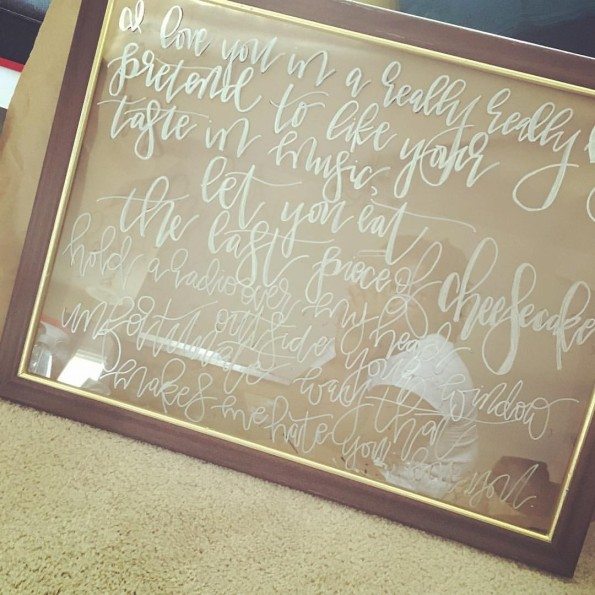 I love you in a really really
pretend to like your
taste in music,
let you eat
the last piece of cheesecake
hold a radio over my head
outside your window
unfortunate way that
makes me hate you love you.